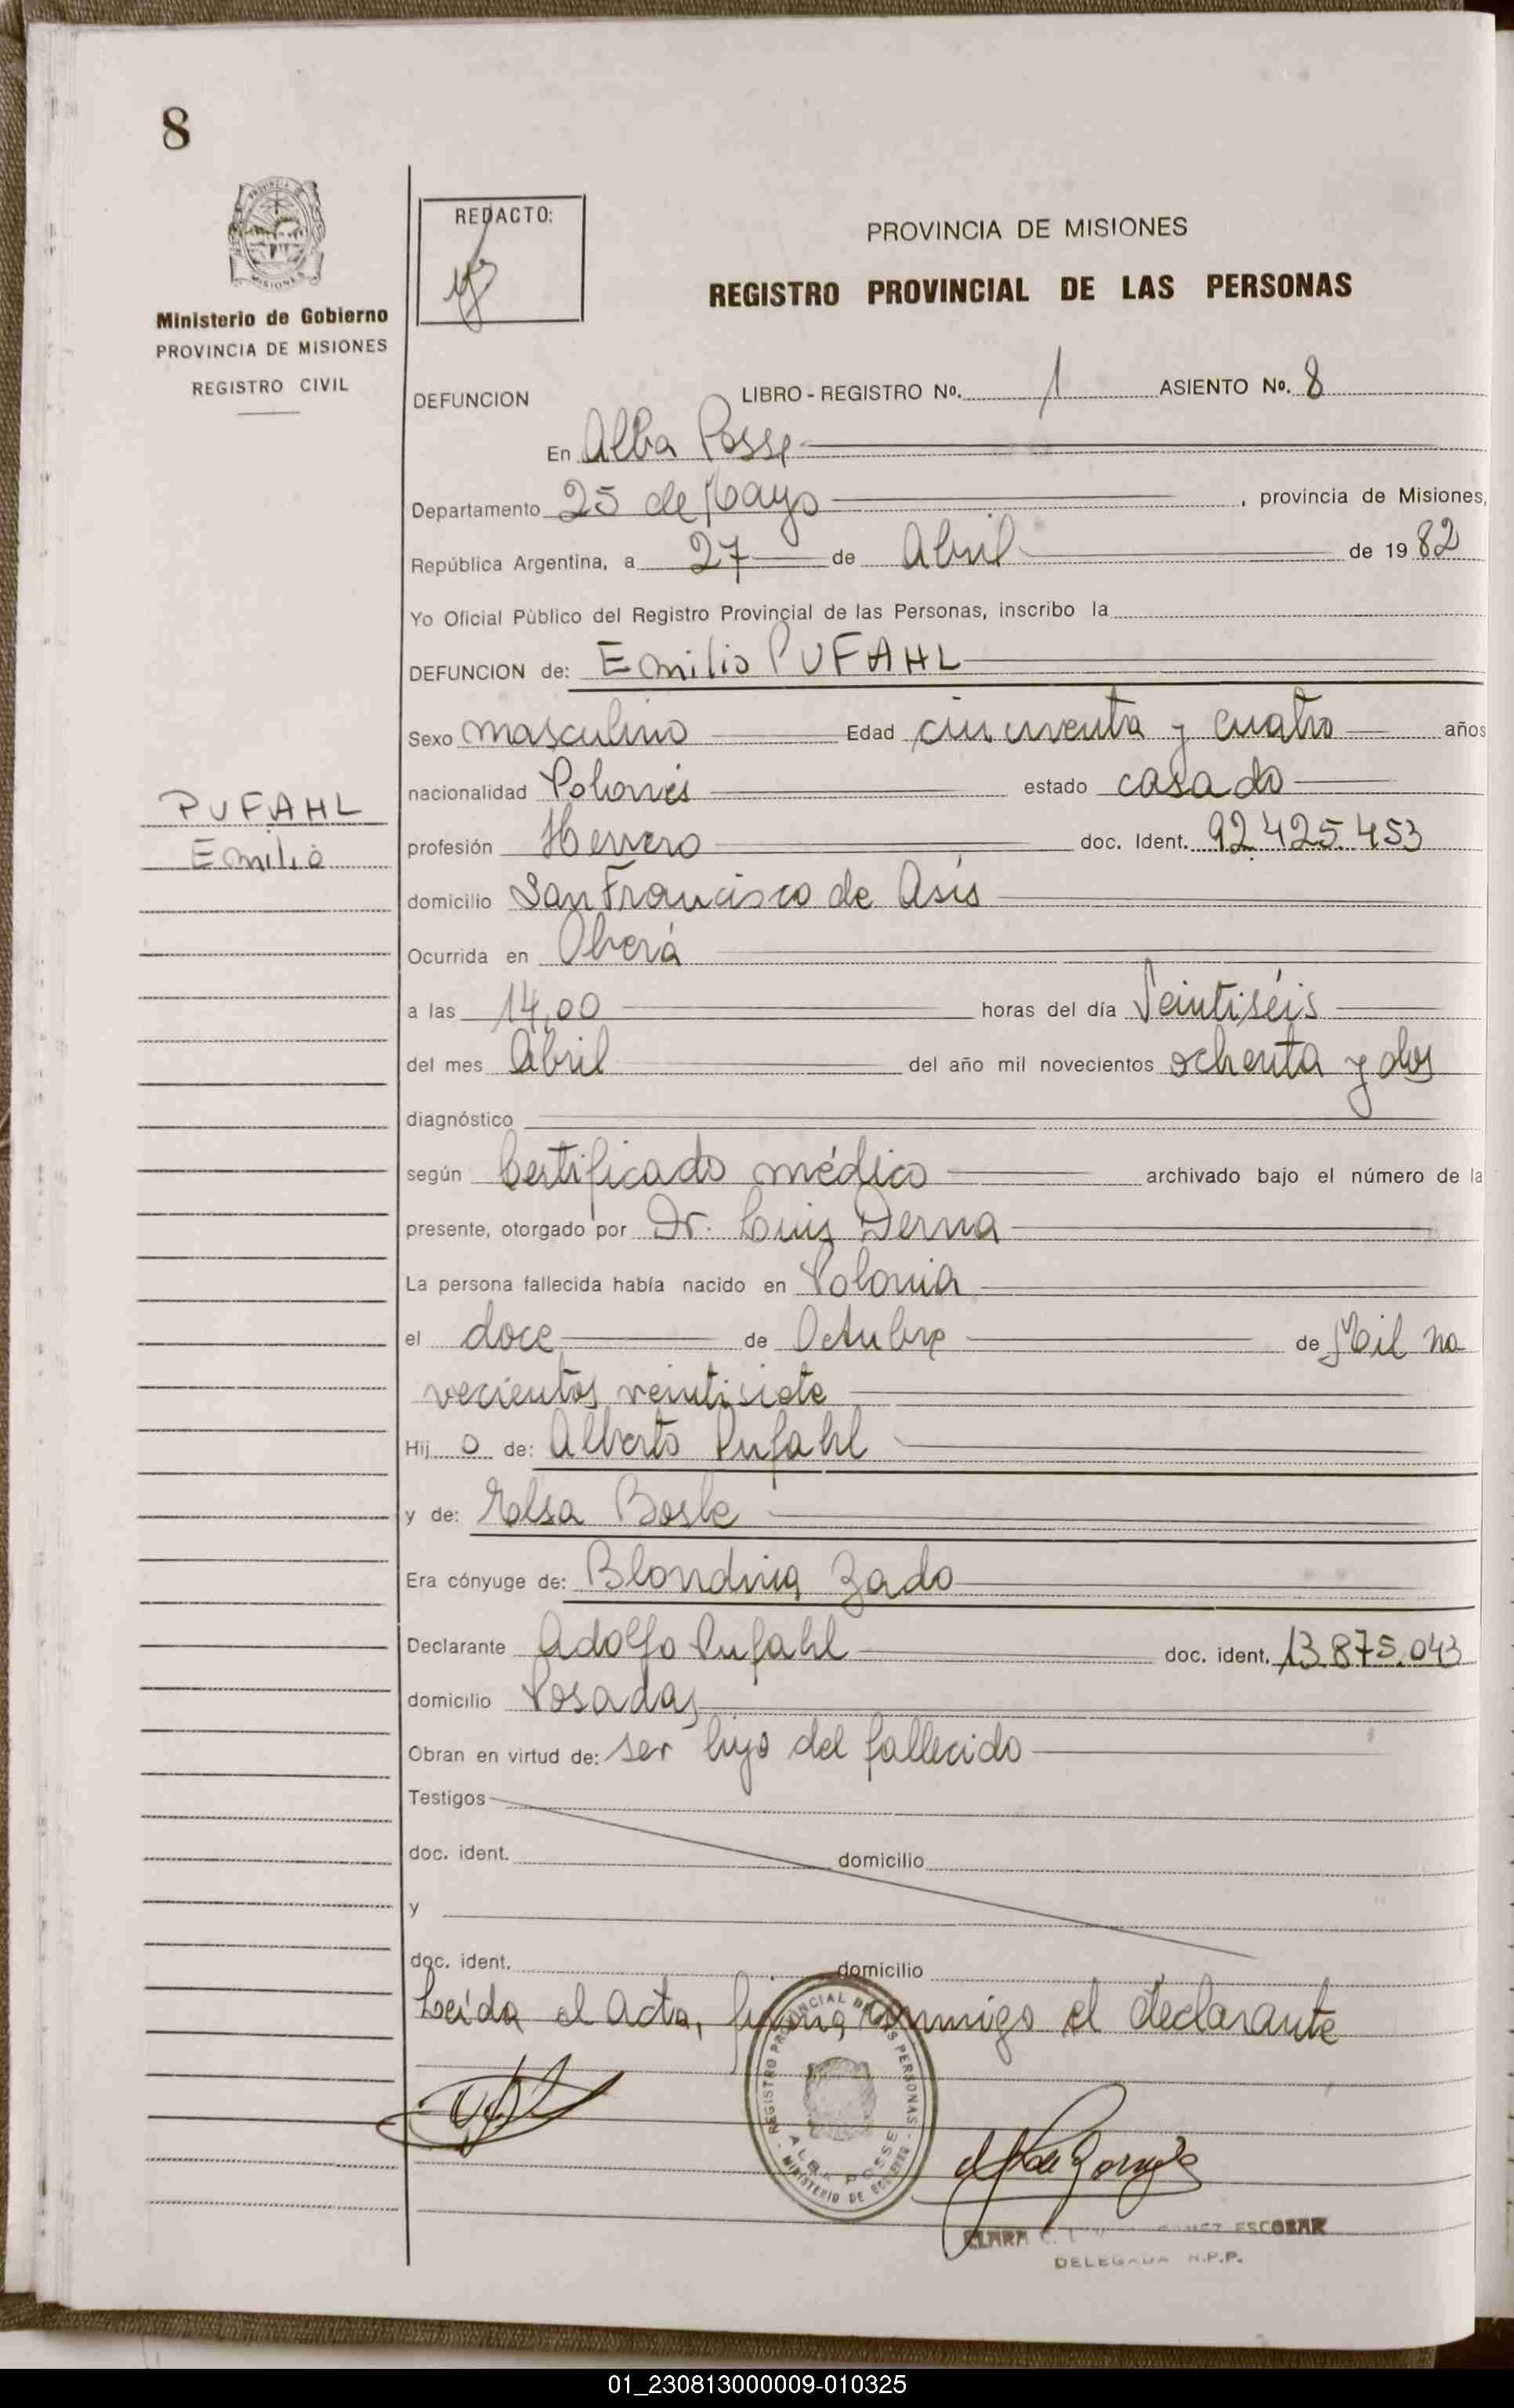 8
PROVINCIA DE
MISIONES
Ministerio de Gobierno
PROVINCIA DE MISIONES
REGISTRO CIVIL
REDACTO:
PROVINCIA DE MISIONES
REGISTRO PROVINCIAL DE LAS PERSONAS
DEFUNCION LIBRO - REGISTRO Nº. 1 ASIENTO Nº. 8
En Alba Posse
Departamento 25 de Mayo, provincia de Misiones,
República Argentina, a 27 de Abril de 19 82
Yo Oficial Público del Registro Provincial de las Personas, inscribo la
DEFUNCION de: Emilio PUFAHL
Sexo masculino Edad cincuenta y cuatro años
nacionalidad Polonés estado casado
PUFAHL
Emilio
profesión Herrero doc. Ident. 92.425.453
domicilio San Francisco de Asís
Ocurrida en Oberá
a las 14,00 horas del día Veintiséis
del mes Abril del año mil novecientos ochenta y dos
diagnóstico
según Certificado médico archivado bajo el número de la
presente, otorgado por Dr. Luis Derna
La persona fallecida había nacido en Polonia
el doce de Octubre de Mil no
vecientos veintisiete
Hij o de: Alberto Pufahl
y de: Elsa
Era cónyuge de: Blondina Zado
Declarante Adolfo Pufahl doc. ident. 13.875.043
domicilio Posadas
Obran en virtud de: ser hijo del fallecido
Testigos
doc. ident. domicilio
y
doc. ident. domicilio
Leída el acta, firma conmigo el declarante
REGISTRO PROVINCIAL DE LAS PERSONAS
ALBA POSSE
MINISTERIO DE GOBIERNO
CLARA C. ESCOBAR
DELEGADA R.P.P.
01_230813000009-010325